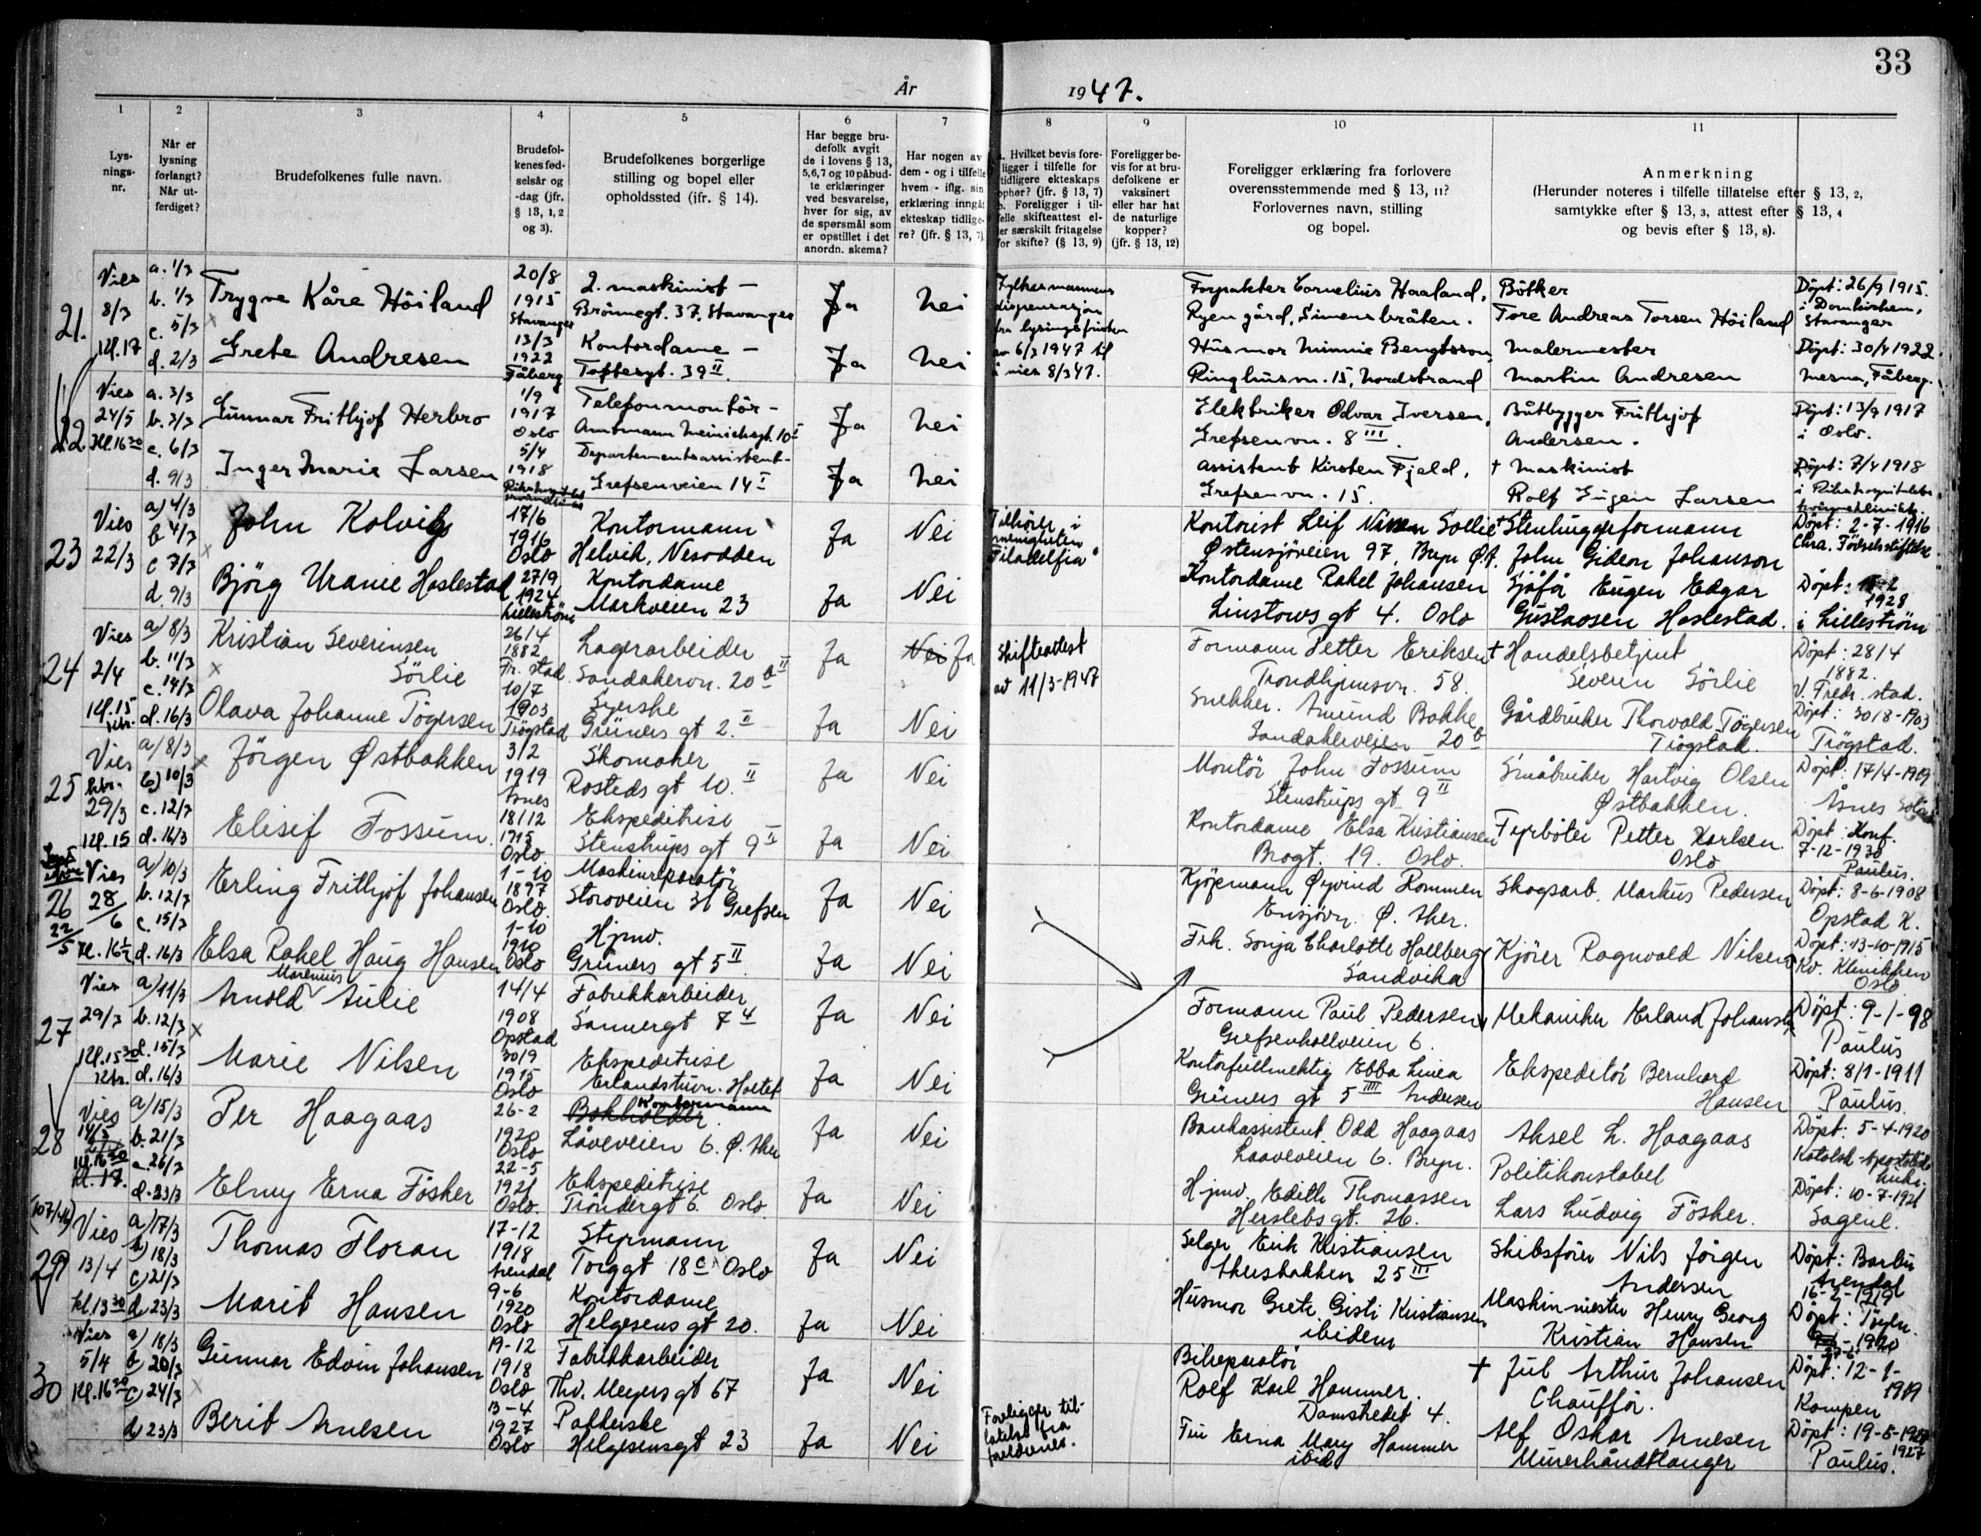 33
År 1947.
1
2
3
4
5
6
7
8
9
10
11
Lys-
nings-
nr.
Når er
lysning
forlangt?
Når ut-
ferdiget?
Brudefolkenes fulle navn.
Brudefol-
kenes fød-
selsår og
-dag (jfr.
§ 13, 1, 2
og 3).
Brudefolkenes borgerlige
stilling og bopel eller
opholdssted (jfr. § 14).
Har begge bru-
defolk avgit
de i lovens § 13,
5, 6, 7 og 10 påbud-
te erklæringer
ved besvarelse,
hver for sig, av
de spørsmål som
er opstillet i det
anordn. skema?
Har nogen av
dem - og i tilfelle
hvem - iflg. sin
erklæring inngåt
ekteskap tidlige-
re? (jfr. § 13, 7).
a. Hvilket bevis fore-
ligger i tilfelle for
tidligere ekteskaps
ophør? (jfr. § 13, 7)
b. Foreligger i til-
felle skifteattest el-
ler særskilt fritagelse
for skifte? (§ 13, 9)
Foreligger be-
vis for at bru-
defolkene er
vaksinert
eller har hat
de naturlige
kopper?
(jfr. § 13, 12)
Foreligger erklæring fra forlovere
overensstemmende med § 13, 11?
Forlovernes navn, stilling
og bopel.
Anmerkning
(Herunder noteres i tilfelle tillatelse efter § 13, 2,
samtykke efter § 13, 3, attest efter § 13, 4
og bevis efter § 13, 8).
21.
Vies
8/3
kl. 17
a. 1/3
b. 1/3
c. 5/3
d. 2/3
Trygve Kåre Höiland
20/8
1915
Stavanger
2. maskinist -
Brönnegt. 37, Stavanger
Ja
Nei
Fylkesmannens
dispensasjon
fra lysingsfristen
av 6/3 1947 til
å vies 8/3 47.
Forpakter Cornelius Haaland,
Ryen gård, Simensbråten.
Bötker
Tore Andreas Torsen Höiland
Döpt: 26/9 1915.
i Domkirken,
Stavanger
Grete Andresen
13/3
1922
Fåberg
Kontordame -
Toftesgt. 39 II.
Ja
Nei
Husmor Minnie Bengtsson,
Ringhusvn. 15, Nordstrand
Malermester
Martin Andresen
Döpt: 30/4 1922.
Mesna, Fåberg.
22.
Vies
24/5
kl. 16 30
a. 3/3
b. 3/3
c. 6/3
d. 9/3
Gunnar Frithjof Herbro
1/9
1917
Oslo
Telefonmontör -
Amtmann Meinichsgt. 10 I
Ja
Nei
Elektriker Odvar Iversen,
Grefsenvn. 8 III.
Båtbygger Frithjof
Andersen.
Döpt: 13/9 1917
i Oslo.
Inger Marie Larsen
5/4
1918
Departementsassistent -
Grefsenveien 14 I
Ja
Nei
Assistent Kirsten Fjeld,
Grefsenvn. 15.
† Maskinist
Rolf Eugen Larsen
Döpt: 7/4 1918
23
Vies
22/3
a) 4/3
b 4/3
c 7/3
d. 9/3
John Kolvig
17/6
1916
Oslo
Kontormann
Helvik, Nesodden
Ja
Nei
Tilhörer
menigheten
"Filadelfia"
Kontorist Leif Nissen Sollie
Östensjöveien 97, Bryn Ö.A.
† Stenhuggerformann
John Gideon Johanson
Döpt: 2-7-1916
Chra. Födselsstiftelse
Björg Uranie Haslestad
27/9
1924
Lilleström
Kontordame
Markveien 23
Ja
Nei
Kontordame Rakel Johansen
Linstows gt 4. Oslo
Sjåför Eugen Edgar
Gustavsen Haslestad.
Döpt:
1928
i Lilleström
24
Vies
2/4
kl. 15
a) 8/3
b. 11/3
c. 14/3
d. 16/3
Kristian Severinsen
Sörlie
26/4
1882
Fr. stad
Lagerarbeider
Sandakervn. 20 b II
Ja
Nei Ja
Skifteattest
av 11/3-1947
Formann Petter Eriksen
Trondhjemsvn. 58.
† Handelsbetjent
Severin Sörlie
Döpt: 28/4
1882.
V. Fredr. stad.
Olava Johanne Tögersen
10/7
1903
Trögstad
Syerske
Grüners gt 2. II
Ja
Nei
Snekker. Amund Bakke
Sandakerveien 20 b
Gårdbruker Thorvald Tögersen
Trögstad.
Döpt: 30/8-1903
Trögstad.
25
Vies
29/3
kl. 15
a) 8/3
b) 10/3
c. 12/3
d. 16/3
Jörgen Østbakken
3/2
1919
Åsnes
Skomaker
Rosteds gt 10. II
Ja
Nei
Montör John Fossum
Stenstrups gt 9 II
Småbruker Hartvig Olsen
Østbakken.
Döpt: 17/4-1919
Åsnes Solör
Elisif Fossum
18/12
1915
Oslo
Ekspeditrise
Stenstrups gt 9 II
Ja
Nei
Kontordame Elsa Kristiansen
Brogt. 19. Oslo
Fyrböter Petter Karlsen.
Oslo
Döpt: Konf.
7-12-1930
Paulus.
26
22/5
Vies
28/6
kl. 16 1/2
a) 10/3
b. 12/3
c. 15/3
d. 16/3
Erling Frithjof Johansen
1-10
1897
Oslo.
Maskinreparatör
Storoveien 31 Grefsen
Ja
Nei
Kjöpmann Øyvind Rommen
Ensjövn. Ø. Aker.
Skogsarb. Markus Pedersen
Döpt: 8-6-1908
Opstad K.
Elsa Rakel Haug Hansen
1-10
1910
Oslo
Hjmv.
Grüners gt 5 II
Ja
Nei
Frk. Sonja Charlotte Hallberg
Sandvika
Kjörer Ragnvald Nilsen
Döpt: 13-10-1915
Kv. Klinikken
Oslo
27
Vies
29/3
kl. 15 30
a) 11/3
b. 12/3
d. 15/3
d. 16/3
Arnold Marenius Aulie
14/4
1908
Opstad
Fabrikkarbeider
Sannergt 7 4
Ja
Nei
Formann Paul Pedersen
Grefsenkollveien 6.
Mekaniker Erland Johansen
Döpt: 9-1-98
Paulus
Marie Nilsen
30/9
1915
Oslo
Ekspeditrise
Erlandstuvn. Holtet
Ja
Nei
Kontorfullmektig Ebba Linea
Grüners gt 5 III Andersen
Ekspeditör Bernhard
Hansen
Döpt: 8/1-1911
Paulus.
28
Vies
kl. 16 30
kl. 17.
a) 15/3
b. 21/3
c. 26/3
d. 23/3
Per Haagaas
26-2
1920
Oslo
Bokholder. Kontormann
Låveveien 6. Ø. Aker
Ja
Nei
Bankassistent. Odd Haagaas
Laaveveien 6. Bryn.
Aksel L. Haagaas
Döpt: 5-4-1920
Katolsk-Apostoliske
Elmy Erna Fösker
22-5
1921
Oslo.
Ekspeditrise
Tröndergt 6. Oslo
Ja
Nei
Hjmv. Edith Thomassen
Herslebs gt. 26.
Politikonstabel
Lars Ludvig Fösker.
Döpt: 10-7-1921
Sagene.
(107/46)
29
Vies
13/4
kl. 13 30
a) 17/3
b) 18/3
c) 21/3
d. 23/3
Thomas Floran
17-12
1918
Arendal
Styrmann
Torggt 18 c Oslo
Ja
Nei
Selger Erik Kristiansen
Akersbakken 25 III
Skibsförer Nils Jörgen
Andersen
Döpt: Barbu
Arendal
16-2-1919
Marit Hansen
9-6
1920
Oslo
Kontordame
Helgesens gt 20.
Ja
Nei
Husmor Grete Gisti Kristiansen
ibidem
Maskinmester Henry Georg
Kristian Hansen
Döpt: Töyen.
1920
30
Vies
5/4
kl. 16 30
a) 18/3
b) 20/3
c) 24/3
d) 23/3
Gunnar Edvin Johansen
19-12
1918
Oslo
Fabrikkarbeider
Thv. Meyers gt 67
Ja
Nei
Bilreparatör
Rolf Karl Hammer.
Damstredet 4.
† Jul Arthur Johansen
Chaufför.
Döpt: 12-1-
1919
Kampen
Berit Arnesen
13-4
1927
Oslo
Pakkerske
Helgesensgt 23
Ja
Nei
Foreligger til-
latelse fra
foreldrenes.
Fru Erna Mary Hammer
ibid
Alf Oskar Arnesen
Murerhåndtlanger
Döpt: 19-5-1927
1927
Paulus.